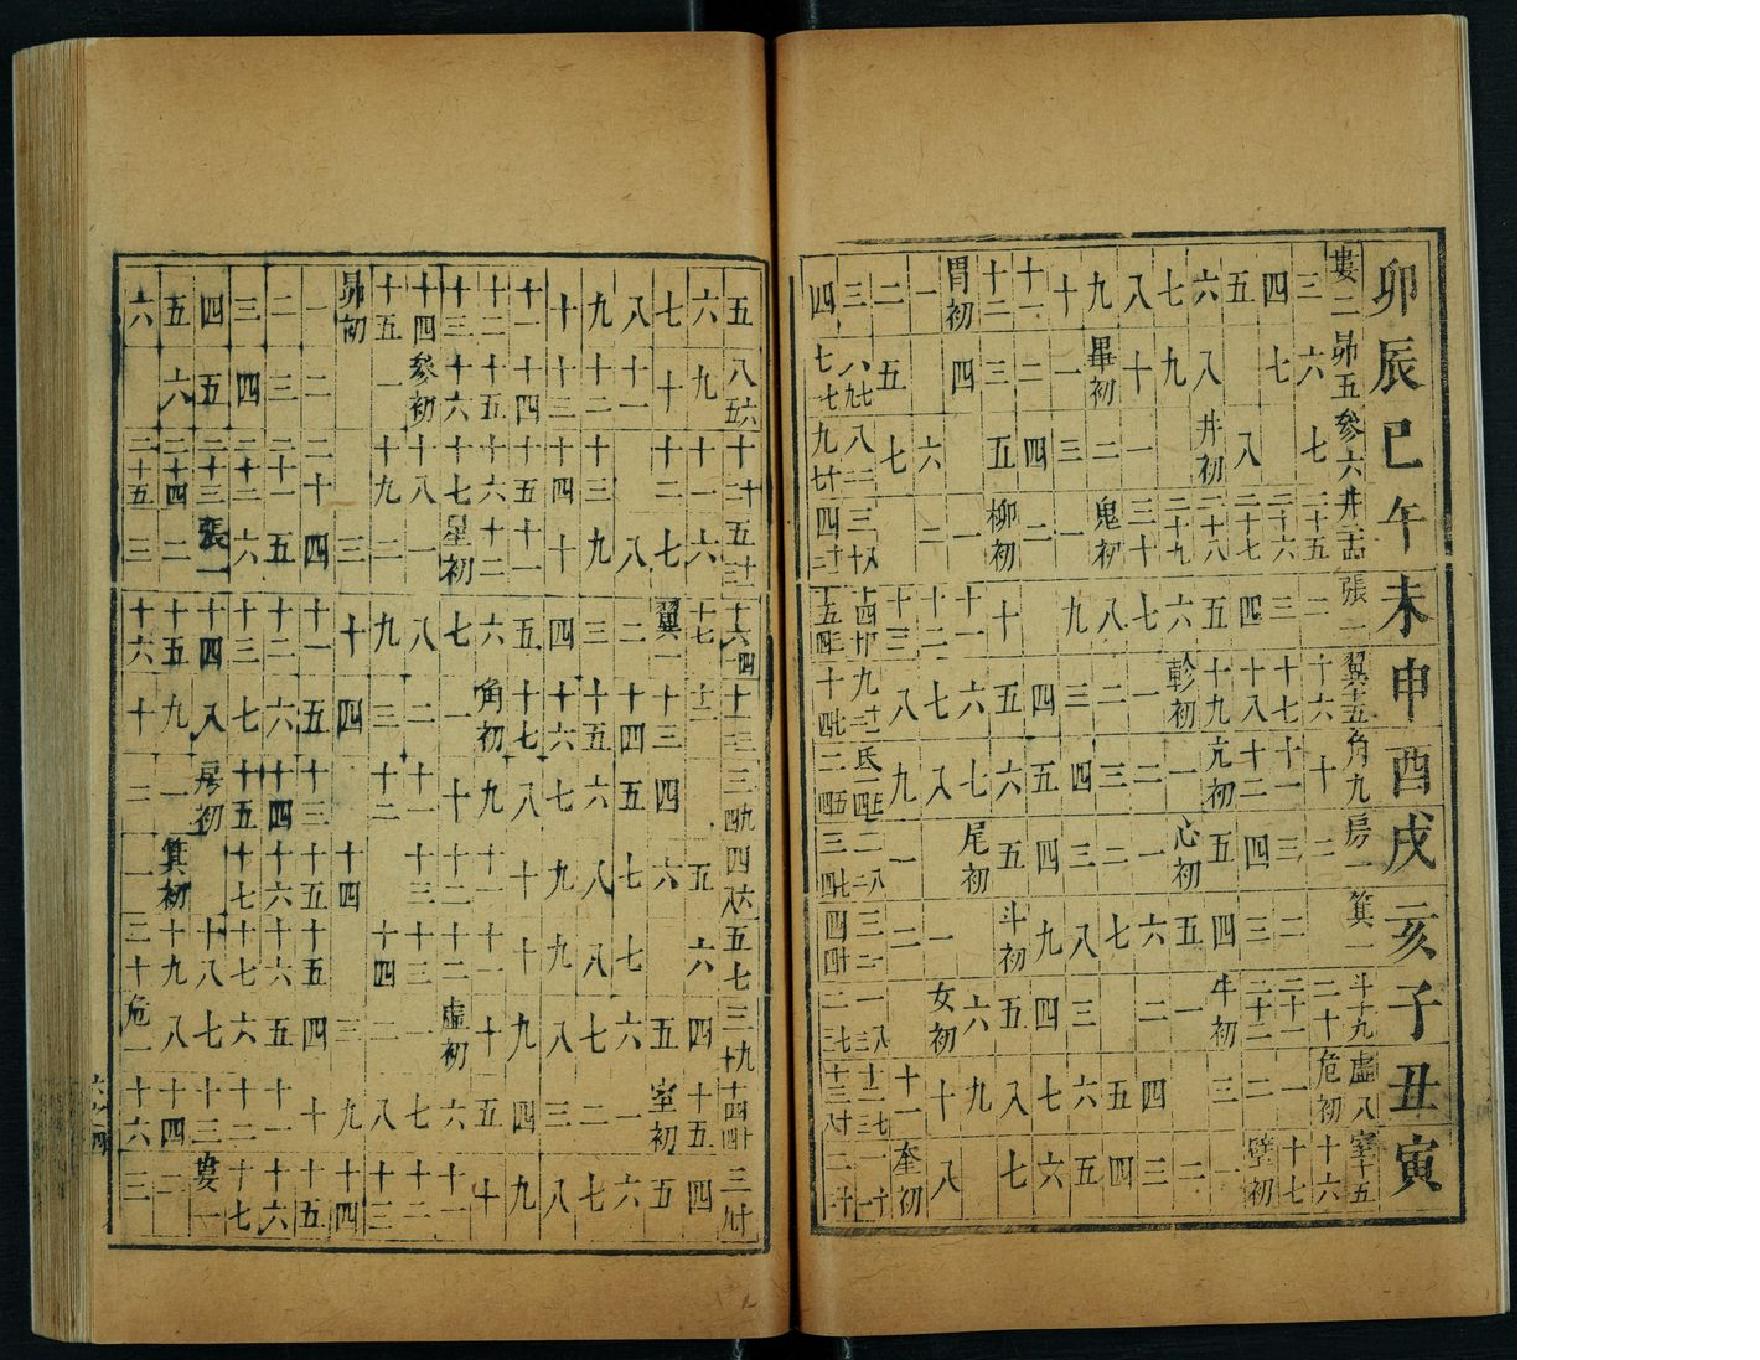 卯辰巳午未申酉戌亥子丑寅
婁二 昴五 參六 井二十四 張一 翼十五 角九 房一 箕一 斗十九 虛八 室十五
三 六 七 二十五 二 十六 十 二 二十 危初 十六
四 七 二十六 三 十七 十一 三 二 二十一 一 十七
五 八 二十七 四 十八 十二 四 三 二十二 二 壁初
六 八 井初 二十八 五 十九 亢初 五 四 牛初 三 一
七 九 二十九 六 軫初 一 心初 五 一 二
八 十 一 三十 七 一 二 一 六 二 四 三
九 畢初 二 鬼初 八 二 三 二 七 五 四
十 一 三 一 九 三 四 三 八 三 六 五
十一 二 四 二 四 五 四 九 四 七 六
十二 三 五 柳初 十 五 六 五 斗初 五 八 七
胃初 四 一 十一 六 七 尾初 六 九
一 六 二 十二 七 八 一 女初 十 八
二 五 七 十三 八 九 一 二 十一 奎初
三 八 三 十四 九 氐一 二 三 一 十二 一
四 七 九 四 十五 十 二 三 四 二 十三 二
五 八 十 五 十六 十一 三 四 五 三 十四 三
六 九 十一 六 十七 十二 五 六 四 十五 四
七 十 十二 七 翼一 十三 四 六 五 室初 五
八 十一 八 二 十四 五 七 七 六 一 六
九 十二 十三 九 三 十五 六 八 八 七 二 七
十 十三 十四 十 四 十六 七 九 九 八 三 八
十一 十四 十五 十一 五 十七 八 十 十 九 四 九
十二 十五 十六 十二 六 角初 九 十一 十一 十 五 十
十三 十六 十七 星初 七 一 十 十二 十二 虛初 六 十一
十四 參初 十八 一 八 二 十一 十三 十三 一 七 十二
十五 一 十九 二 九 三 十二 十四 二 八 十三
昴初 三 十 四 十四 三 九 十四
一 二 二十 四 十一 五 十三 十五 十五 四 十 十五
二 三 二十一 五 十二 六 十四 十六 十六 五 十一 十六
三 四 二十二 六 十三 七 十五 十七 十七 六 十二 十七
四 五 二十三 張一 十四 八 房初 十八 七 十三 婁一
五 六 二十四 二 十五 九 一 箕初 十九 八 十四 二
六 二十五 三 十六 十 二 一 二十 危一 十六 三